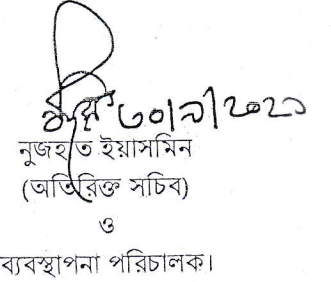 ৩০/৯/২০২১
নুজহাত ইয়াসমিন
(অতিরিক্ত সচিব)
ও
ব্যবস্থাপনা পরিচালক।